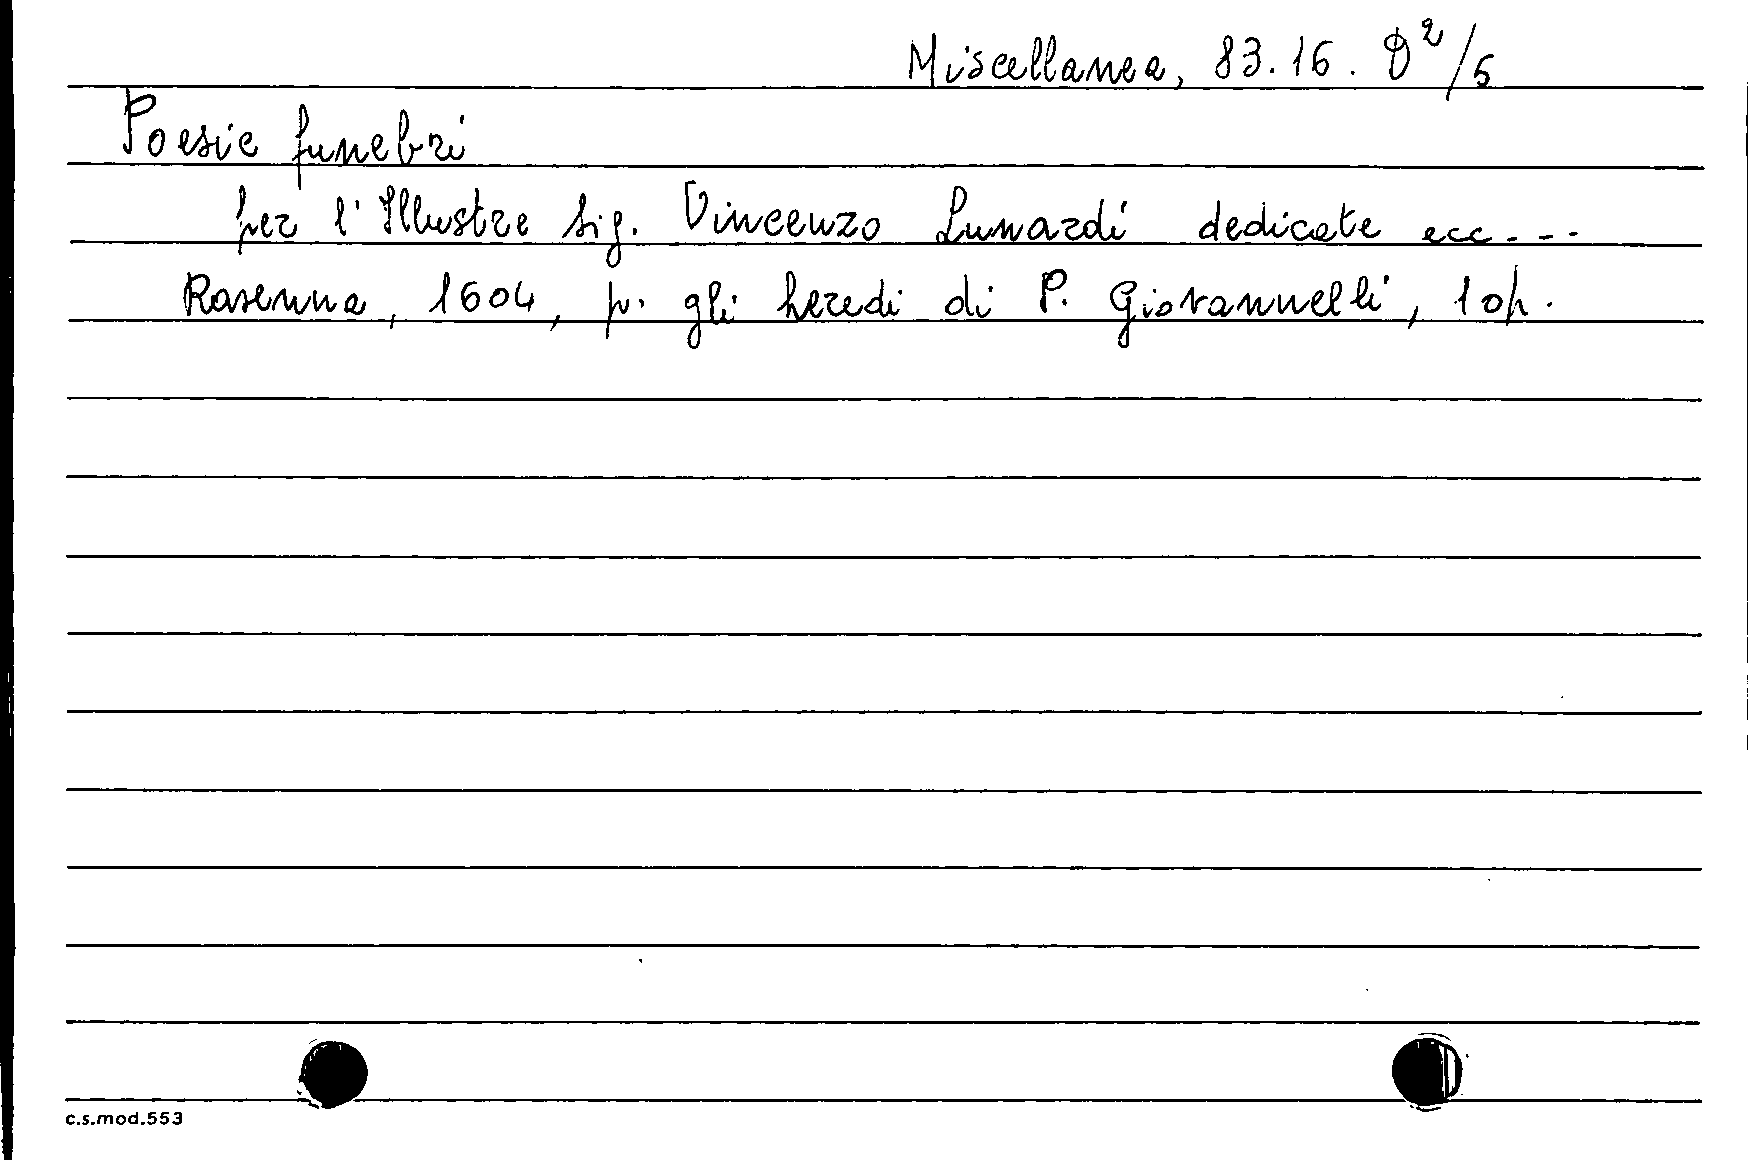 Miscellanea, 83.16. D²/5
Poesie funebri
per l'Illustre sig. Vincenzo Lunardi dedicate ecc...
Ravenna, 1604, p. gli heredi di P. Giovannelli, 1 op.
c.s.mod.553